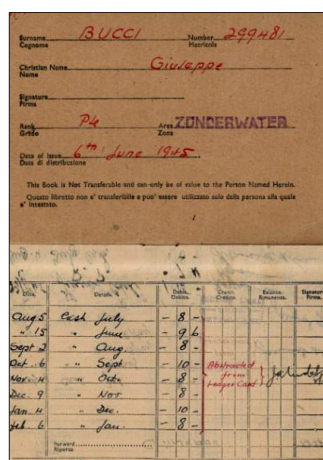 Surname BUCCI Number 299481
Cognome Matricola
Christian Name Giuseppe
Name
Signature
Firma
Rank Pte Area ZONDERWATER
Grado Zona
Date of issue 6th June 1945
Data di distribuzione
This Book is Not Transferable and can only be of value to the Person Named Herein.
Questo libretto non e' transferibile e puo' essere utilizzato solo dalla persona alla quale
e' intestato.
Date. Details. Debit. Credit. Balance. Signature
Debito. Credito. Rimanenza. Firma
Aug 5 Cash July - 8 -
" 15 " June - 9 6
Sept 2 " Aug. - 8 -
Oct. 6 " Sept - 10 - Abstracted
Nov. 4 " Oct. - 8 - from
Dec. 9 " Nov. - 8 - Ledger Card
Jan. 4 " Dec. - 10 -
Feb. 6 " Jan. - 8 -
Forward
Riporto